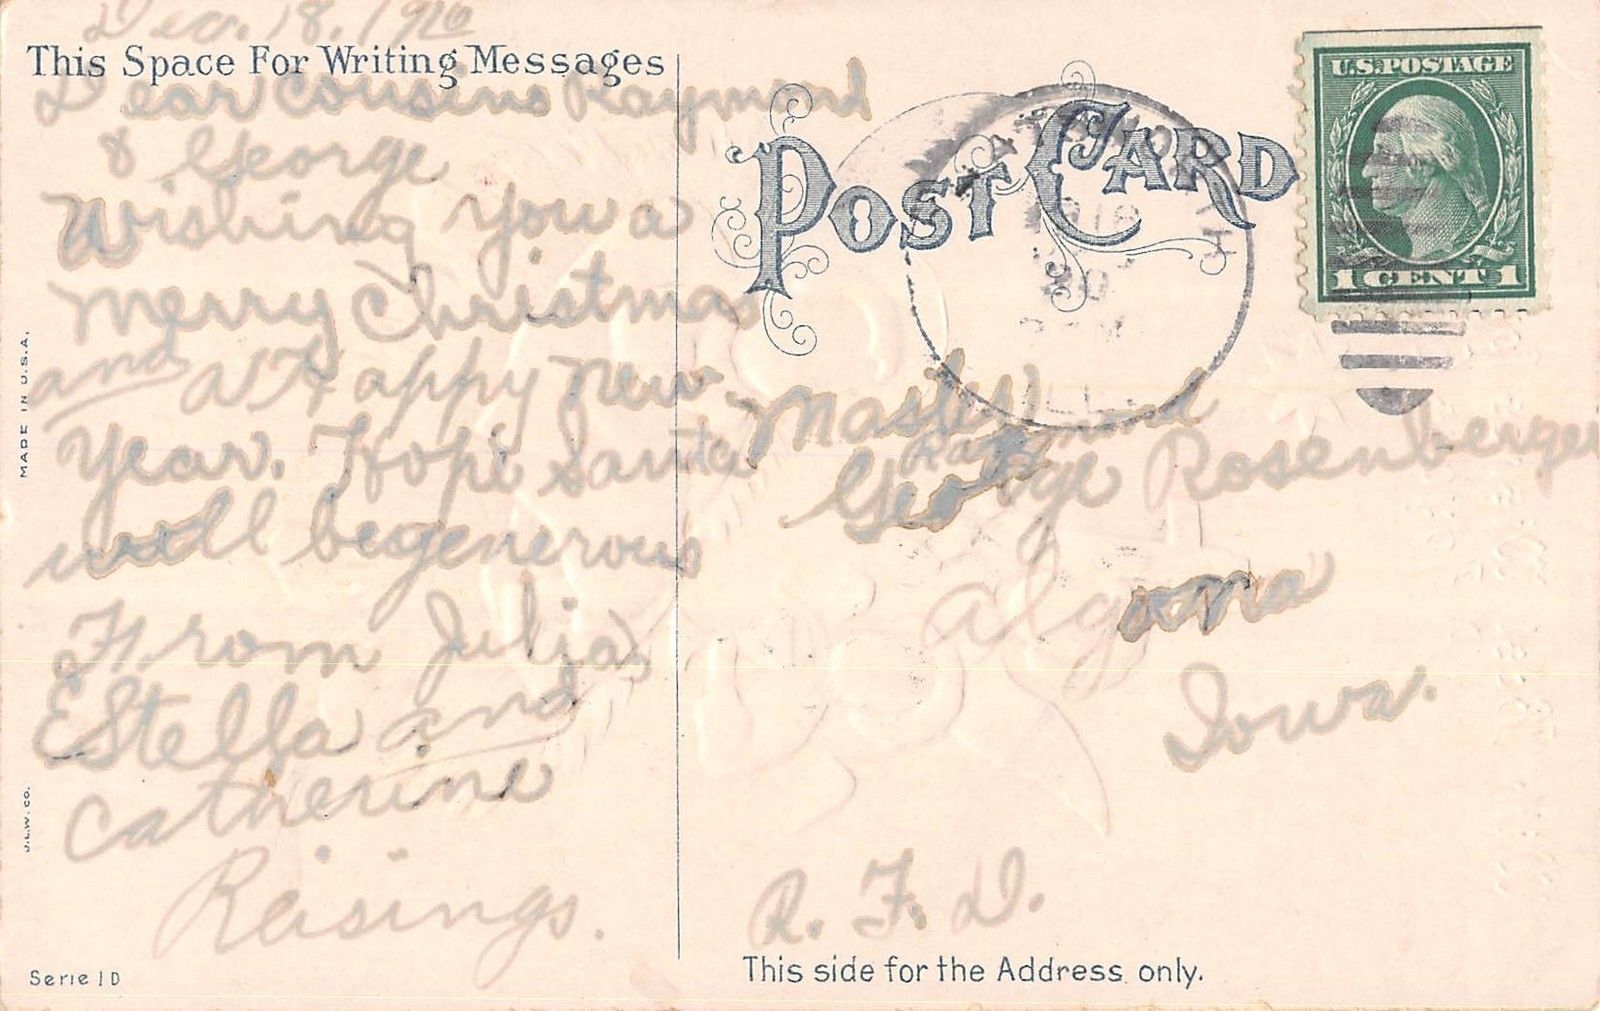 Dec. 18, 1916
This Space For Writing Messages
Dear Cousins Raymond
& George
Wishing you a
Merry Christmas
and a Happy New
Year. Hope Santa
will be generous
From Julia,
EStella and
Catherine
Reisings.
MADE IN U.S.A.
J.L.W. CO.
Serie 1 D
POST CARD
U.S. POSTAGE
1 CENT 1
Raymond
George Rosenberger
Algona
Iowa.
R. F. D.
This side for the Address only.